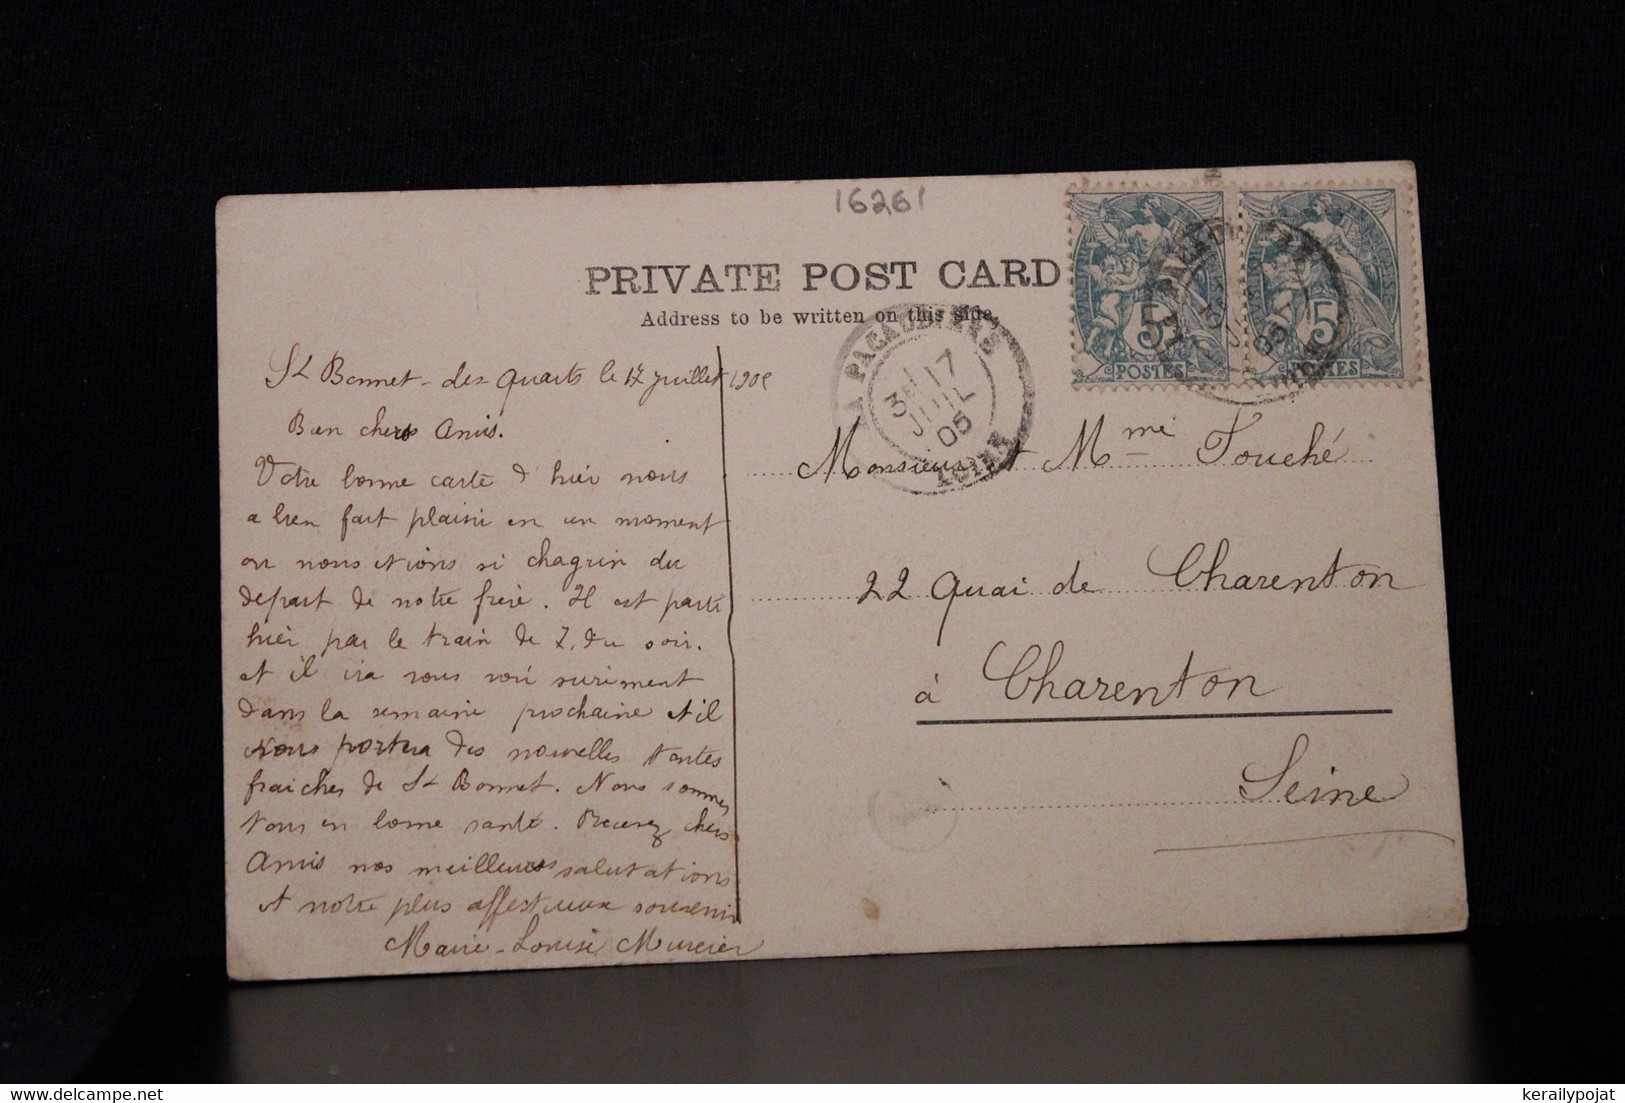 16261
PRIVATE POST CARD
Address to be written on this side.
LA PACAUDIERE
3E 17
JUIL
05
LOIRE
5
POSTES
5
POSTES
05
St Bonnet-des-Quarts le 17 juillet 1905
Bien chers Amis.
Votre bonne carte d'hier nous
a bien fait plaisir en un moment
ou nous étions si chagrin du
départ de notre frère. Il est parti
hier par le train de 7. du soir.
et il ira vous voir surement
dans la semaine prochaine et il
Vous portera des nouvelles toutes
fraiches de St Bonnet. Nous sommes
tous en bonne santé. Recevez chers
Amis nos meilleures salutations
et notre plus affectueux souvenir
Marie-Louise Mercier
Monsieur et Mme Fouché
22 Quai de Charenton
à Charenton
Seine
kerailypojat